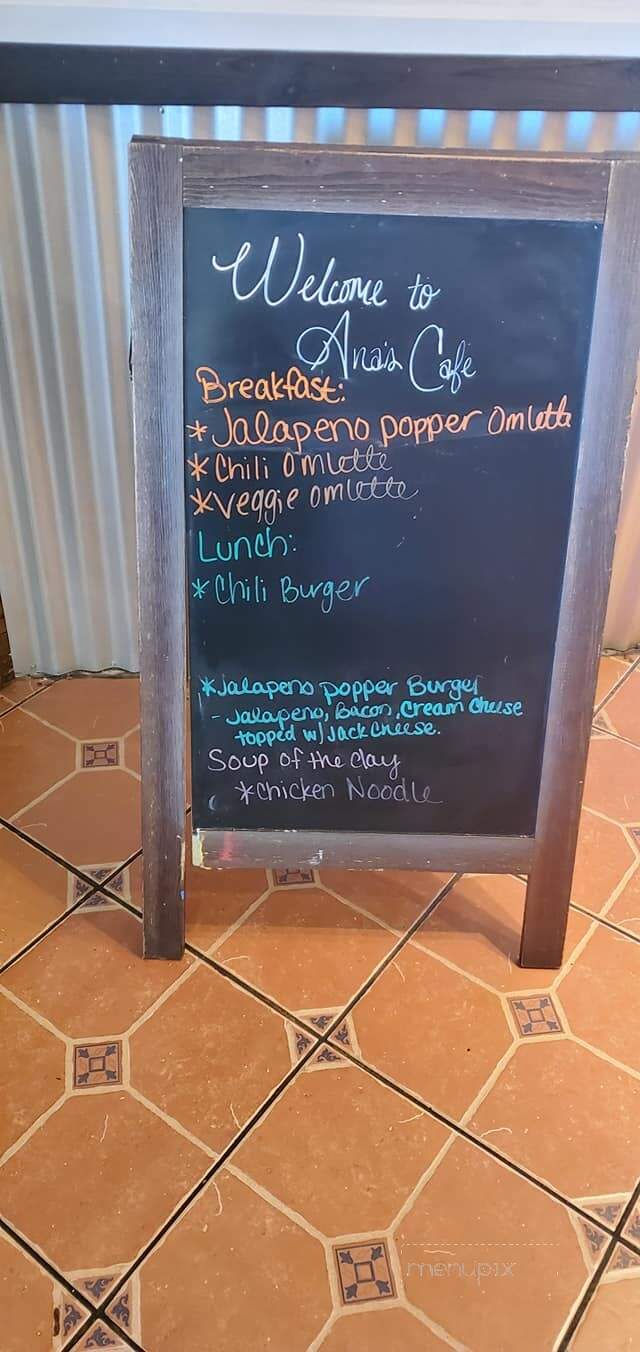 Welcome to
Ana's Cafe
Breakfast:
*Jalapeno popper Omlette
*Chili Omlette
*Veggie omlette
Lunch:
*Chili Burger
*Jalapeno popper Burger
- Jalapeno, Bacon, Cream Cheese
topped w/ Jack Cheese.
Soup of the day
*Chicken Noodle
menupix